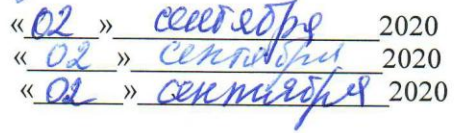 «02» сентября 2020
«02» сентября 2020
«02» сентября 2020